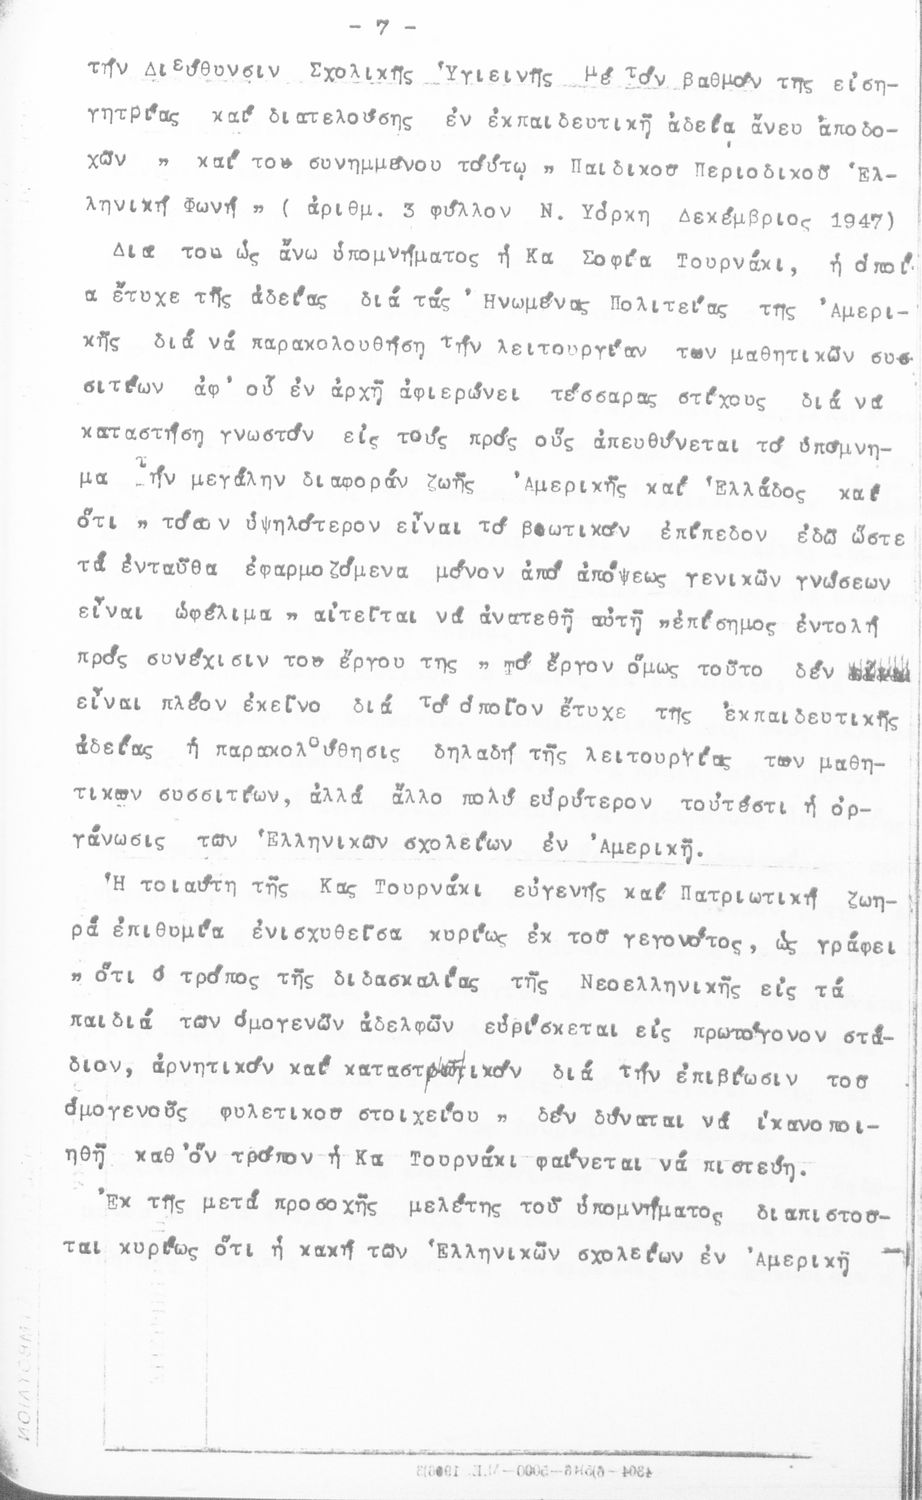 - 7 -
τήν Διεύθυνσιν Σχολικῆς Ὑγιεινῆς μέ τόν βαθμόν της εἰση-
γητρίας καί διατελούσης ἐν ἐκπαιδευτικῇ ἀδείᾳ ἄνευ ἀποδο-
χῶν " καί του συνημμένου τούτῳ " Παιδικοῦ Περιοδικοῦ Ἑλ-
ληνική Φωνή " ( ἀριθμ. 3 φύλλον Ν. Υόρκη Δεκέμβριος 1947)
Δια του ὡς ἄνω ὑπομνήματος ἡ Κα Σοφία Τουρνάκι, ἡ ὁποί
α ἔτυχε τῆς ἀδείας διά τάς Ἡνωμένας Πολιτείας της Ἀμερι-
κῆς διά νά παρακολουθήση τήν λειτουργίαν των μαθητικῶν συσ
σιτίων ἀφ' οὗ ἐν ἀρχῇ ἀφιερώνει τέσσαρας στίχους διά νά
καταστήση γνωστόν εἰς τούς πρός οὕς ἀπευθύνεται τό ὑπομνη-
μα τήν μεγάλην διαφοράν ζωῆς Ἀμερικῆς καί Ἑλλάδος καί
ὅτι " τόσον ὑψηλότερον εἶναι τό βιωτικόν ἐπίπεδον ἐδῶ ὥστε
τά ἐνταῦθα ἐφαρμοζόμενα μόνον ἀπό ἀπόψεως γενικῶν γνώσεων
εἶναι ὠφέλιμα " αἰτεῖται νά ἀνατεθῇ αὐτῇ "ἐπίσημος ἐντολή
πρός συνέχισιν του ἔργου της " τό ἔργον ὅμως τοῦτο δέν
εἶναι πλέον ἐκεῖνο διά τό ὁποῖον ἔτυχε της ἐκπαιδευτικῆς
ἀδείας ἡ παρακολούθησις δηλαδή τῆς λειτουργίας των μαθη-
τικων συσσιτίων, ἀλλά ἄλλο πολύ εὐρύτερον τοὐτέστι ἡ ὀρ-
γάνωσις τῶν Ἑλληνικῶν σχολείων ἐν Ἀμερικῇ.
Ἡ τοιαύτη τῆς Κας Τουρνάκι εὐγενής καί Πατριωτική ζωη-
ρά ἐπιθυμία ἐνισχυθεῖσα κυρίως ἐκ τοῦ γεγονότος, ὡς γράφει
" ὅτι ὁ τρόπος τῆς διδασκαλίας τῆς Νεοελληνικῆς εἰς τά
παιδιά τῶν ὁμογενῶν ἀδελφῶν εὑρίσκεται εἰς πρωτόγονον στά-
διον, ἀρνητικόν καί καταστρεπτικόν διά τήν ἐπιβίωσιν τοῦ
ὁμογενοῦς φυλετικοῦ στοιχείου " δέν δύναται νά ἱκανοποι-
ηθῇ καθ'ὅν τρόπον ἡ Κα Τουρνάκι φαίνεται νά πιστεύη.
Ἐκ τῆς μετά προσοχῆς μελέτης τοῦ ὑπομνήματος διαπιστοῦ-
ται κυρίως ὅτι ἡ κακή τῶν Ἑλληνικῶν σχολείων ἐν Ἀμερικῇ -